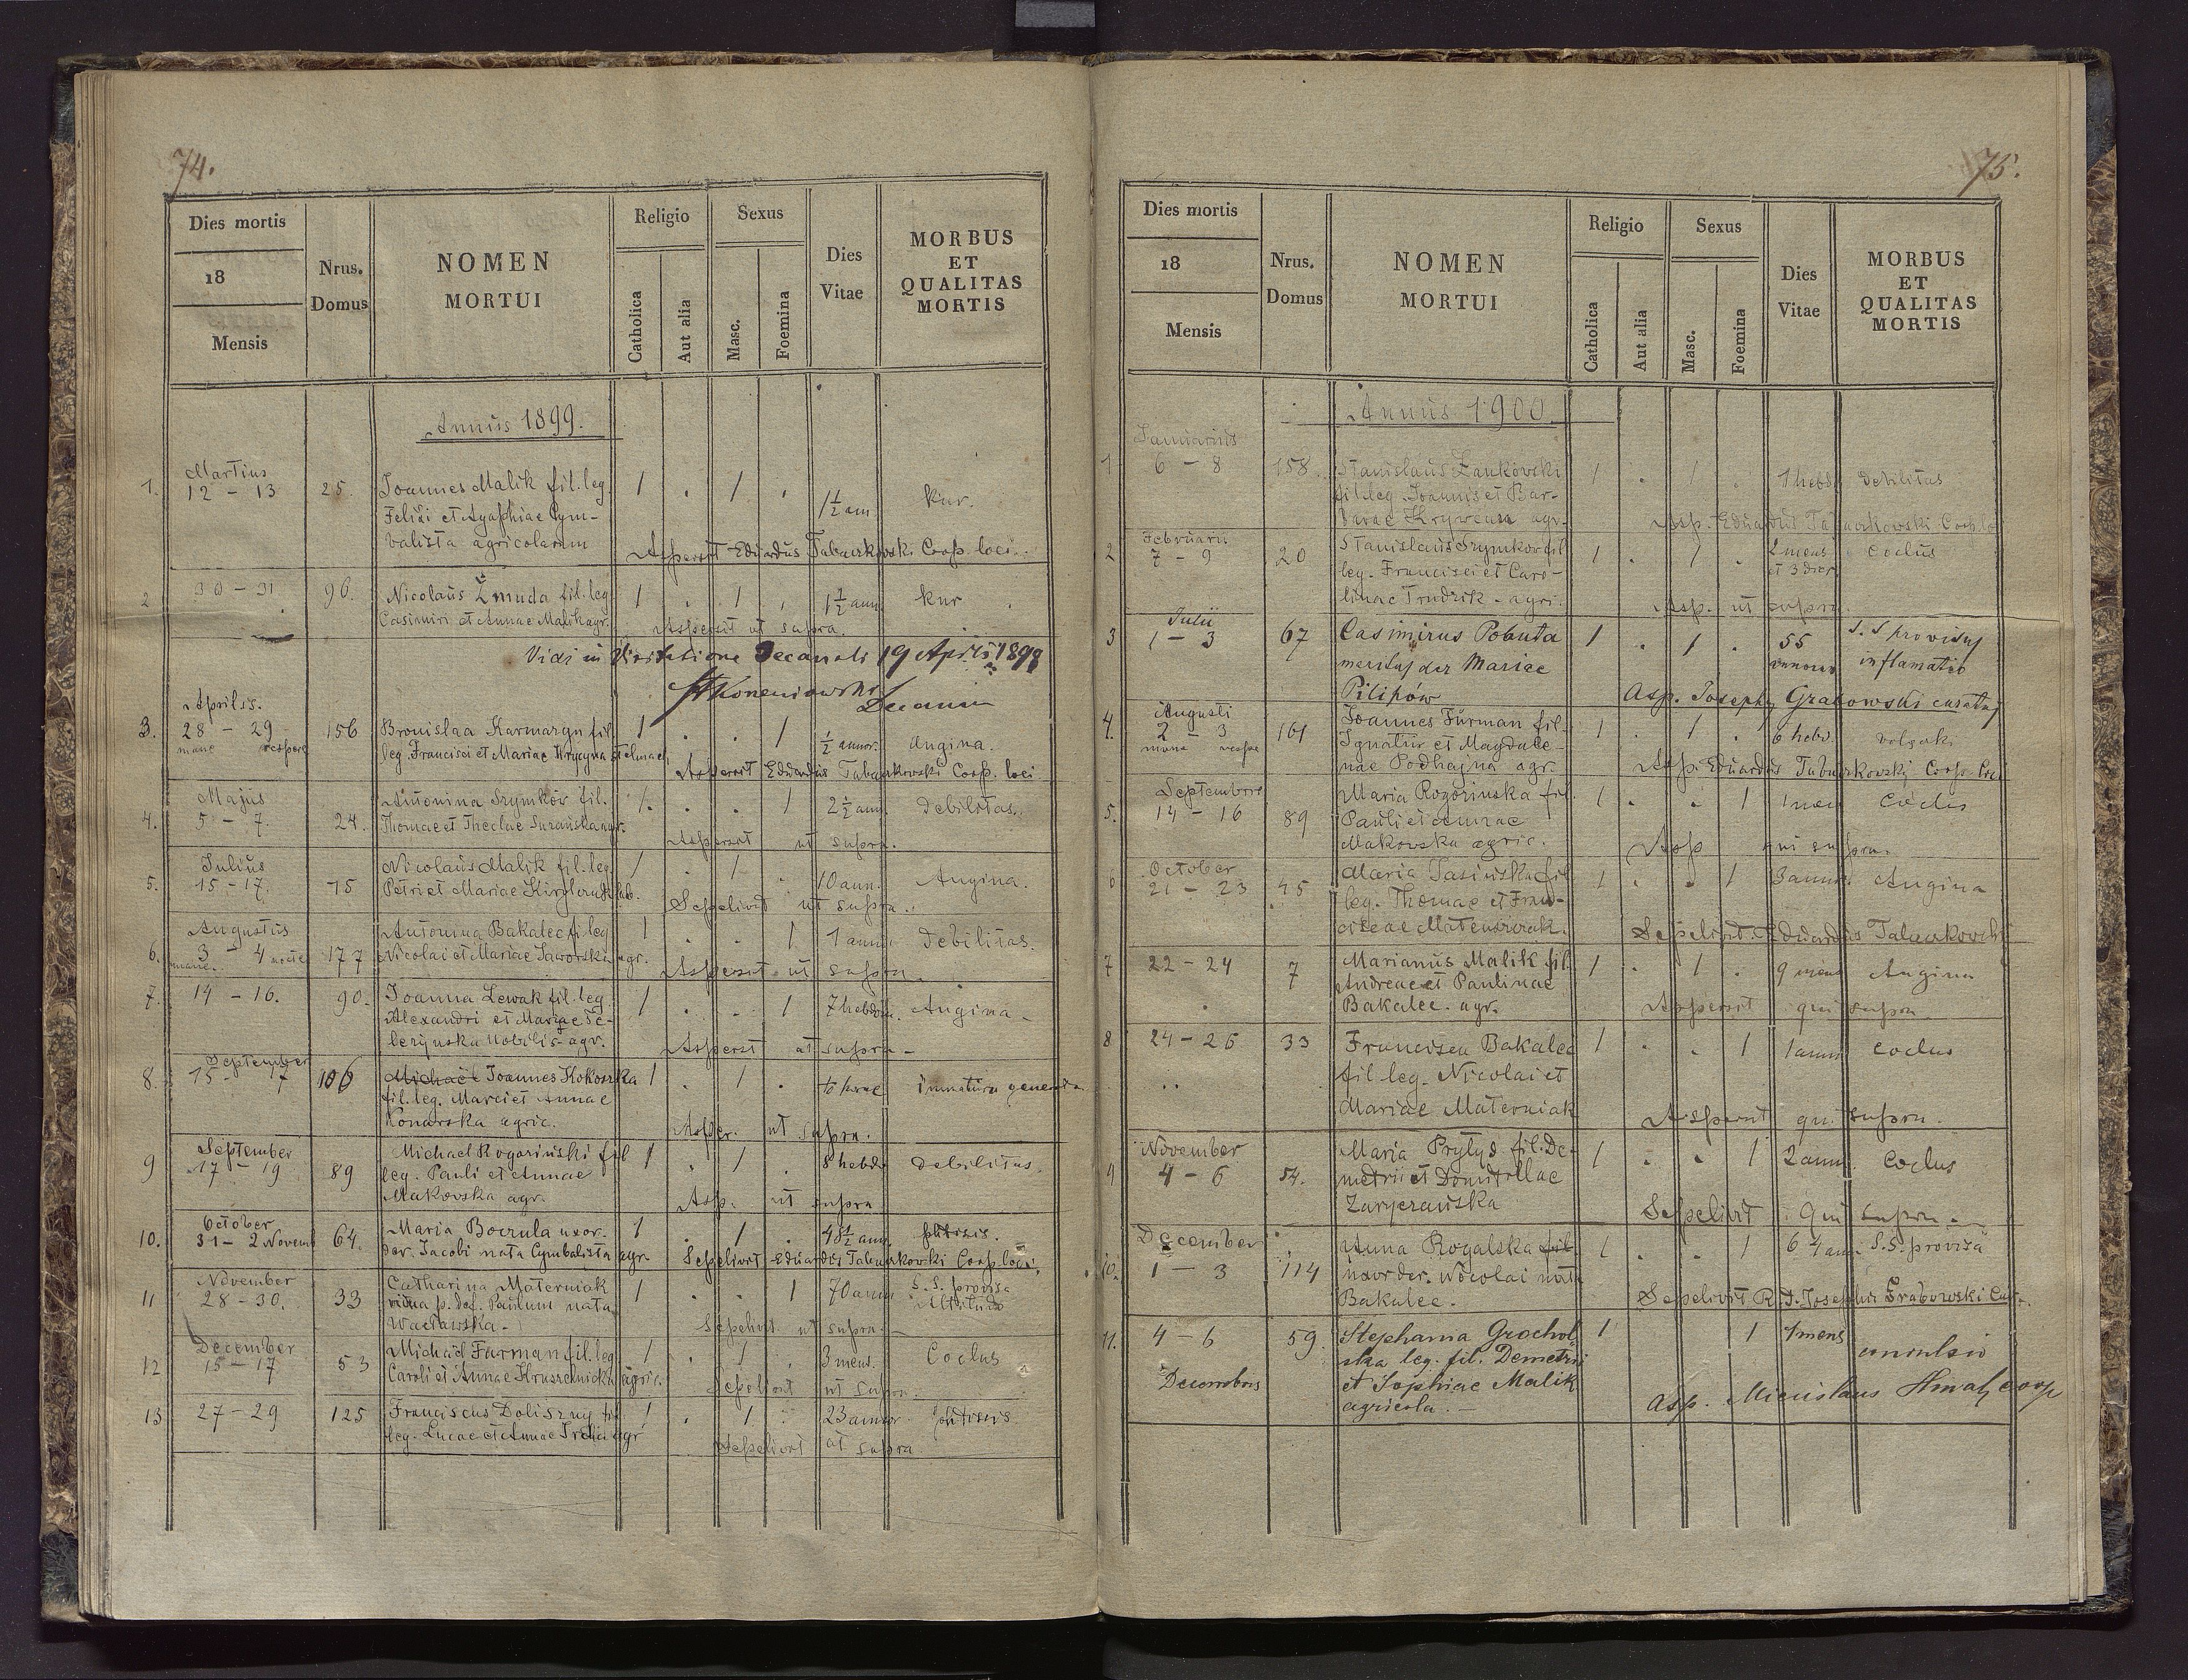 74.
Dies mortis
18
Mensis
Nrus.
Domus
NOMEN
MORTUI
Religio
Catholica
Aut alia
Sexus
Masc.
Foemina
Dies
Vitae
MORBUS
ET
QUALITAS
MORTIS
Annus 1899.
1. Martius
12 - 13 25. Joannes Malik fil. leg. 1 . 1 . 1½ ann. kur.
Felisi et Agaphiae Cym-
balista agricolarum Aspersit Eduardus Tabaczkowski Coop. loci.
2 30 - 31 96. Nicolaus Żmuda fil. leg. 1 . 1 . 1½ ann. kur
Casimiri et Annae Malik agr. Aspersit ut supra
Vidi in Visitatione Decanali 19 Aprilis 1899
Decanus
Aprilis.
3. 28 - 29 156 Bronislaa Karmazyn fil. 1 . . 1 ½ annor. Angina.
mane vespere leg. Francisci et Mariae
Aspersit Eduardus Tabaczkowski Coop. loci
Majus Antonina Szymków fil. 1. . . 1 2½ ann. Debilitas.
4. 5 - 7. 24. Thomae et Theclae agr.
Aspersit ut supra.
Julius Nicolaus Malik fil. leg. 1 . 1 . 10 ann. Angina.
5. 15 - 17. 15 Petri et Mariae
Sepelivit ut supra.
Augustus Antonina Bakalec fil. leg. 1 . . 1 1 ann. Debilitas.
6. 3 - 4 177 Nicolai et Mariae Jaworska agr.
mane. Aspersit ut supra
7. 14 - 16. 90. Joanna Lewak fil. leg. 1 . . 1 7 hebdo. Angina -
Alexandri et Mariae Te-
leżynska nobilis agr. Aspersit ut supra -
September
8. 15 - 17 106 Michael Joannes Kokoszka 1 . 1 . 10 horae immatura
fil. leg. Marci et Annae
Konarska agric. Asper. ut supra.
September Michael Rogoziński fil 1 . 1 . 8 hebdo. Debilitas.
9 17 - 19 89 leg. Pauli et Annae
Makowska agr. Asp. ut supra
October
10. 31 - 2 Novemb 64. Maria Boczula uxor. 1 . 1 . 48½ ann. phtisis.
der. Jacobi nata Cymbalista agr. Sepelivit Eduardus Tabaczkowski Coop. loci.
November Catharina Materniak 1 . . 1 70 ann S. S. provisa
11 28 - 30. 33 vidua p. def. Paulum nata
Sepelivit ut supra.
December Michael Furman fil. leg 1 . 1 . 3 mens. Coclus
12 15 - 17 53 Caroli et Annae agric.
Sepelivit ut supra.
13 27 - 29 125 Franciscus Doliszny fil 1 . 1 . 23 annor. phtisis
leg. Lucae et Annae agr
Sepelivit ut supra
75.
Dies mortis
18
Mensis
Nrus.
Domus
NOMEN
MORTUI
Religio
Catholica
Aut alia
Sexus
Masc.
Foemina
Dies
Vitae
MORBUS
ET
QUALITAS
MORTIS
Annus 1900
Januarius
1 6 - 8 158. Stanislaus Zankowski 1 . 1 . 1 hebd. Debilitas
fil. leg. Joannis et Bar-
barae agr. Asp. Eduardus Tabaczkowski Coop. lo
Februarii
2 7 - 9 20 Stanislaus Szymkow fil 1 . 1 . 2 mens Coclus
leg. Francisci et Caro- et 3 dier
linae Trudzik - agri. Asp. ut supra.
Julii
3 1 - 3 67 Casimirus Pobuta 1 . 1 . 55 S. S provisus
maritus der Mariae annorum inflamatio
Pilipów Asp. Josephus Grabowski curatus
Augusti
4. 2 - 3 161 Joannes Furman fil- 1 . 1 . 6 hebd.
mane vespere Ignatii et Magdale-
nae Podhajna agr. Asp. Eduardus Tabaczkowski Coop. loci
Septembris
5. 14 - 16 89 Maria Rogozinska fil. 1 . . 1 1 mens Coclus
Pauli et Annae
Makowska agric. Asp qui supra.
October
6 21 - 23 45 Maria Jasinska fil 1 . . 1 3 annor. Angina
leg. Thomae et Fran-
ciscae Sepelivit Eduardus Tabaczkowski
7 22 - 24 7 Marianus Malik fil. 1 . 1 . 9 mens Angina
Andreae et Paulinae
Bakalec. agr. Aspersit qui supra
8 24 - 26 33 Francisca Bakalec 1 . . 1 1 anni Coclus
fil. leg. Nicolai et
Mariae Materniak Aspersit qui supra.
November
9 4 - 6 54. Maria Prytys fil. De- 1 . . 1 2 ann. Coclus
metrii et Domitillae
Sepelivit qui supra.
December
10. 1 - 3 114 Anna Rogalska fil 1 . . 1 64 ann. S. S. provisa
uxor der. Nicolai nata
Bakalec. Sepelivit R. D. Josephus Grabowski Cur.
11. 4 - 6 59. Stephania Grochol- 1 1 1 mens convulsio
ska leg. fil. Demetrii
Decembris et Sophiae Malik
agricola. - Asp. Miecislaus coop